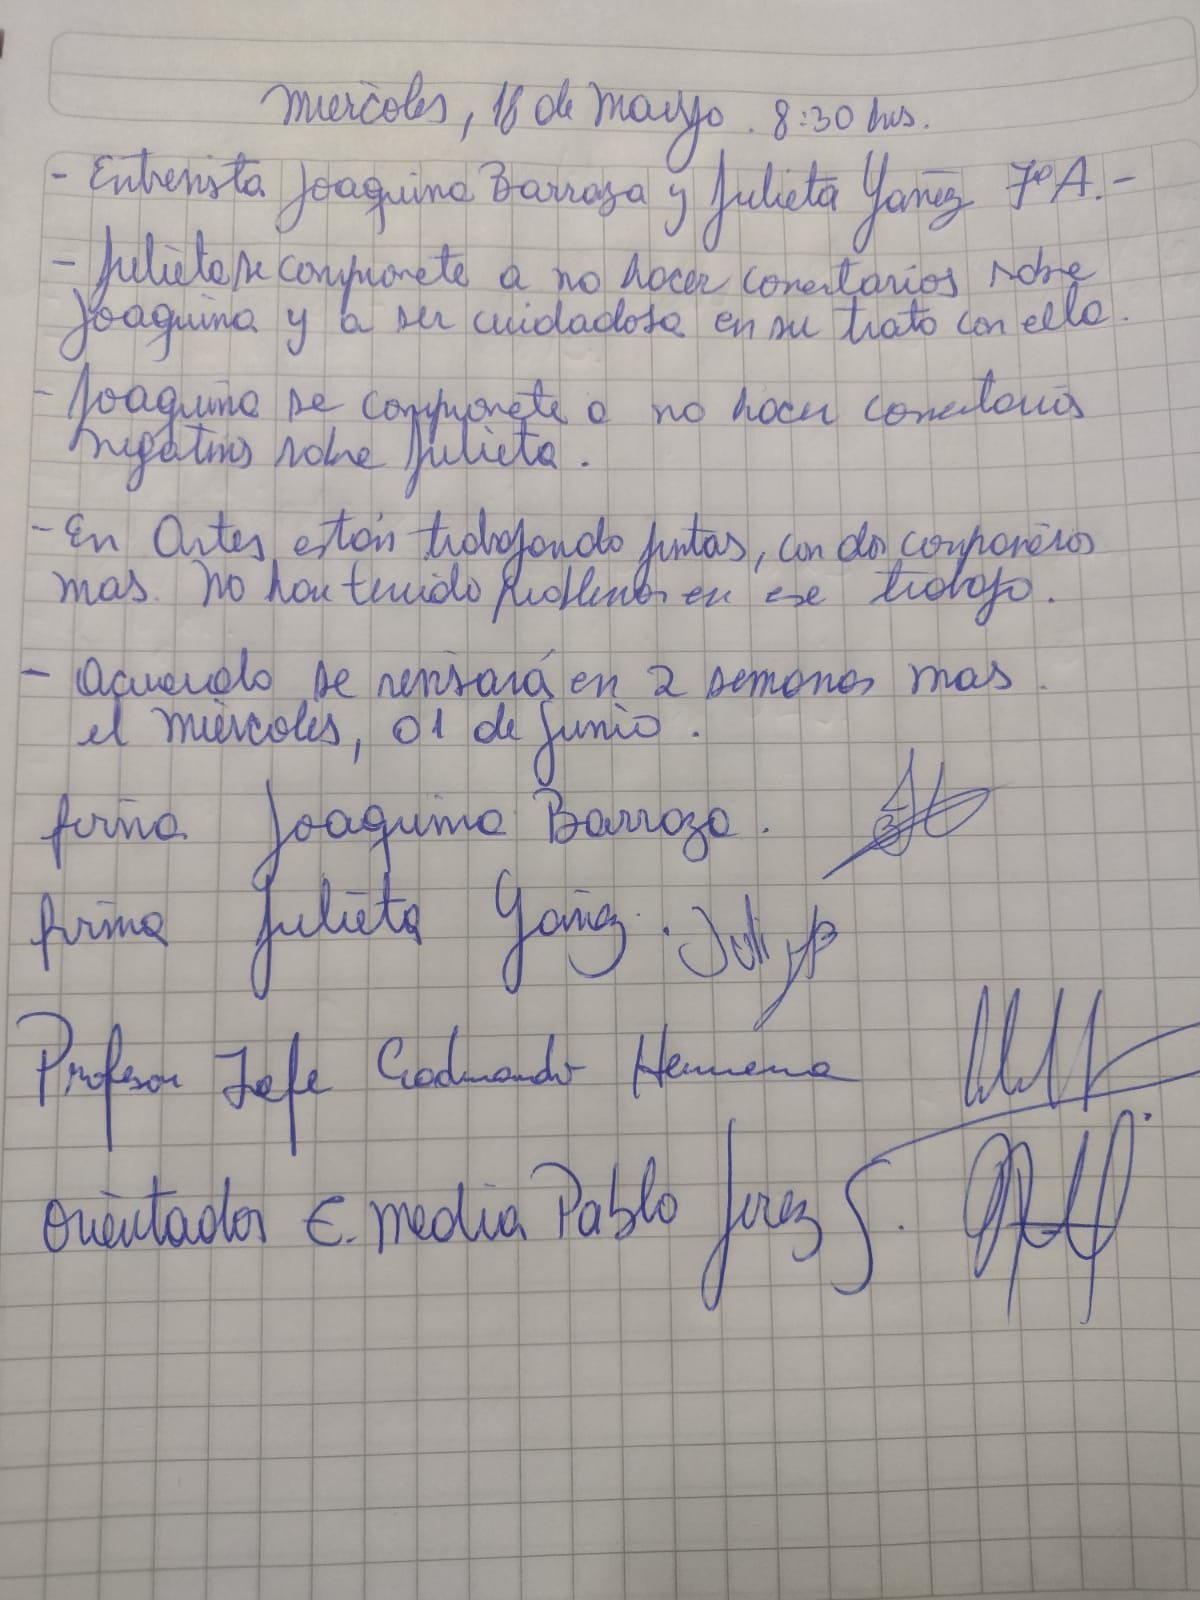 Miercoles, 18 de Mayo. 8:30 hrs.
- Entrevista Joaquina Barroza y Julieta Yañez 7º A.-
- Julieta se compromete a no hacer comentarios sobre
Joaquina y a ser cuidadosa en su trato con ella.
- Joaquina se compromete a no hacer comentarios
negativos sobre Julieta.
- En Artes están trabajando juntas, con dos compañeros
mas. No han tenido problemas en ese trabajo.
- Acuerdo se revisará en 2 semanas mas.
el miercoles, 01 de Junio.
firma Joaquina Barroza.
firma Julieta Yañez. Juli
Profesor Jefe
Orientador E. Media Pablo Jerez S.